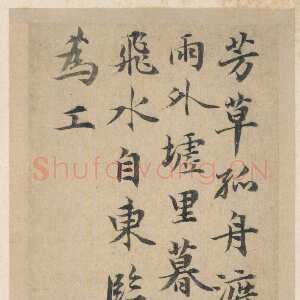 芳草孤舟渡
雨外墟里暮
飛水自東臨
為工
Shufawang.CN